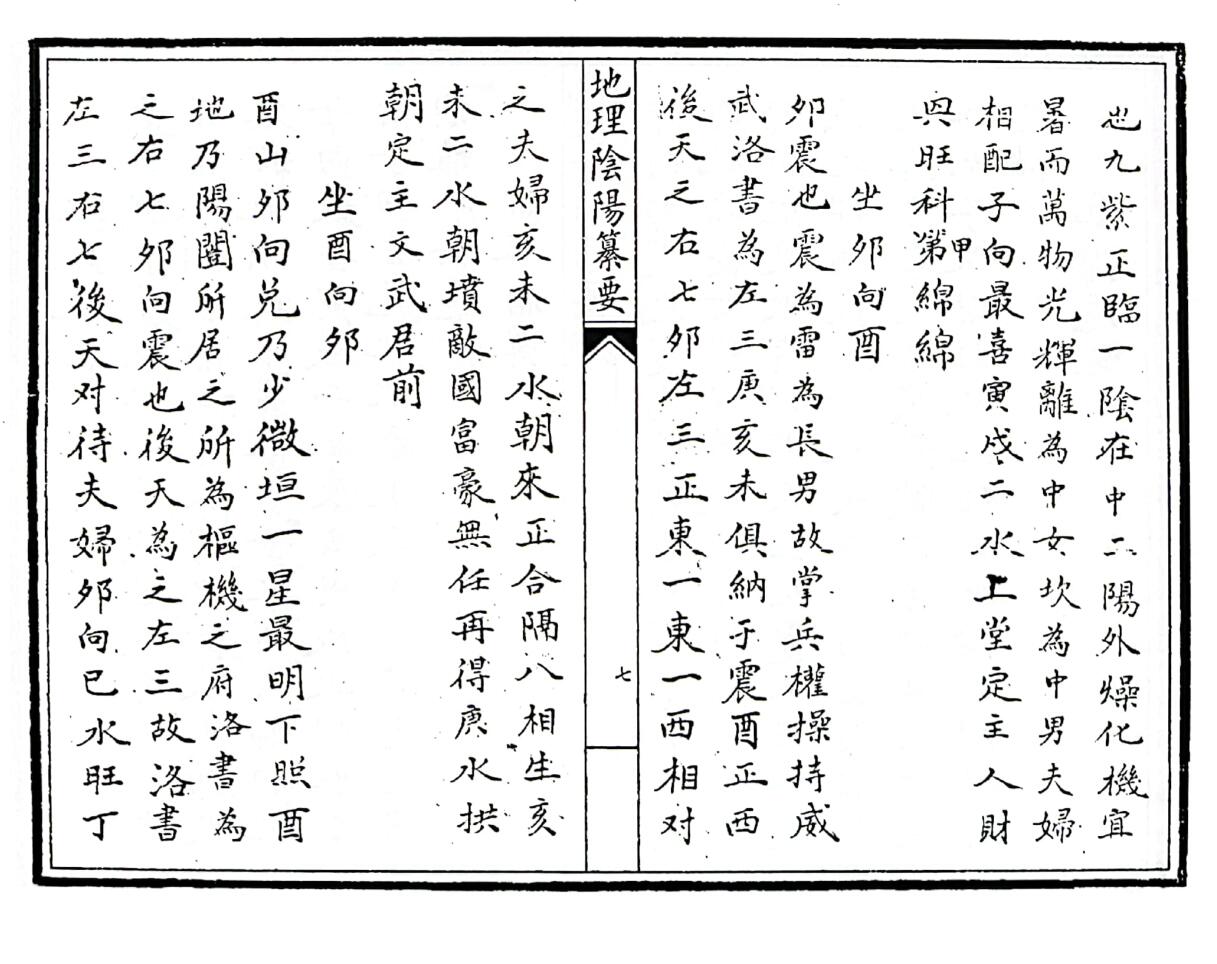 也九紫正臨一陰在中二陽外燥化機宜
暑而萬物光輝離為中女坎為中男夫婦
相配子向最喜寅戌二水上堂定主人財
興旺科甲第綿綿
坐夘向酉
夘震也震為雷為長男故掌兵權操持威
武洛書為左三庚亥未俱納于震酉正西
後天之右七夘左三正東一東一西相对
地理陰陽纂要
七
之夫婦亥未二水朝來正合隔八相生亥
未二水朝墳敵國富豪無任再得庚水拱
朝定主文武君前
坐酉向夘
酉山夘向兌乃少微垣一星最明下照酉
地乃陽闔所居之所為樞機之府洛書為
之右七夘向震也後天為之左三故洛書
左三右七後天对待夫婦夘向巳水旺丁